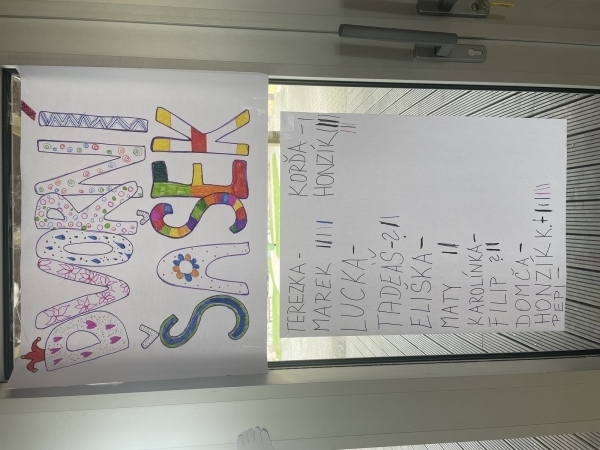 DVORNÍ
ŠAŠEK
TEREZKA - KORĎA - |
MAREK ||||| HONZÍK ||||
LUCKA -
TADEÁŠ - ?||
ELIŠKA -
MATY ||
KAROLÍNKA -
FILIP ?||
DOMČA -
HONZÍK K.
PEPI -